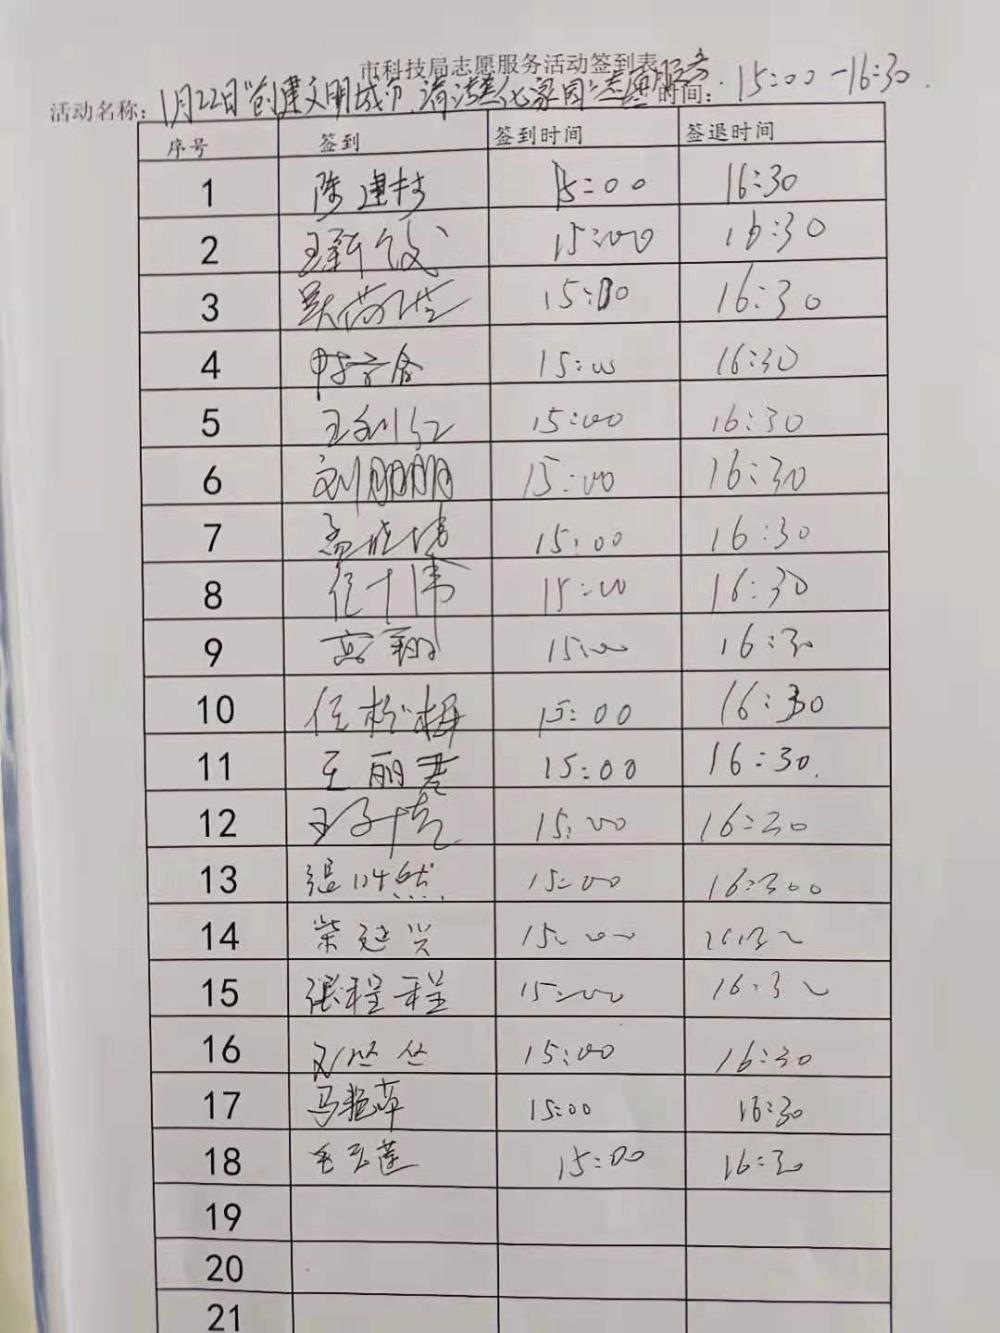 市科技局志愿服务活动签到表
活动名称：1月22日"创建文明城市,清洁美化家园"志愿服务 时间：15:00-16:30
序号 签到 签到时间 签退时间
1 陈建村 15:00 16:30
2 15:00 16:30
3 15:00 16:30
4 15:00 16:30
5 王利红 15:00 16:30
6 刘朋朋 15:00 16:30
7 孟晓伟 15:00 16:30
8 任十伟 15:00 16:30
9 高翔 15:00 16:30
10 任松梅 15:00 16:30
11 王丽君 15:00 16:30.
12 15:00 16:30
13 張 然 15:00 16:300
14 柴延兴 15:00 16:30
15 張程程 15:00 16:30
16 刘丛丛 15:00 16:30
17 马艳萍 15:00 16:30
18 毛玉莲 15:00 16:30
19
20
21